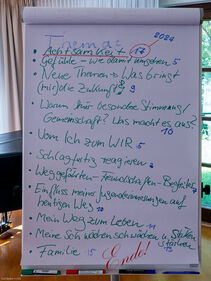 Themen 2024
• Achtsamkeit 17
• Gefühle – wie damit umgehen 5
• Neue Themen → Was bringt
(mir) die Zukunft? 9
• Warum hier besondere Stimmung/
Gemeinschaft? Was macht es aus?
10
• Vom Ich zum WIR 5
• Schlagfertig reagieren 8
• Weggefährten – Freundschaften – Begleiter
• Einfluss meiner Jugenderinnerungen auf
heutigen Weg 10
• Mein Weg zum Leben 11
• Meine Schwächen schwächen u. Stärken
stärken 13
• Familie 15 Ende!